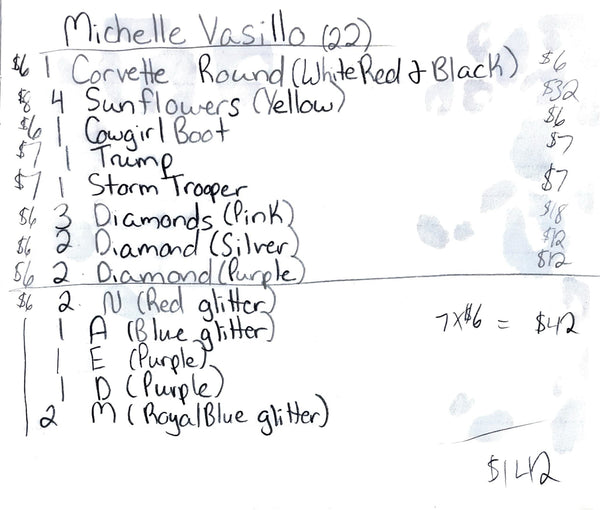 Michelle Vasillo (22)
$6 1 Corvette Round (White Red & Black) $6
$8 4 Sunflowers (Yellow) $32
$6 1 Cowgirl Boot $6
$7 1 Trump $7
$7 1 Storm Trooper $7
$6 3 Diamonds (Pink) $18
$6 2 Diamond (Silver) $12
$6 2 Diamond (Purple) $12
$6 2 N (Red glitter)
1 A (Blue glitter) 7x$6 = $42
1 E (Purple)
1 D (Purple)
2 M (Royal Blue glitter)
$142